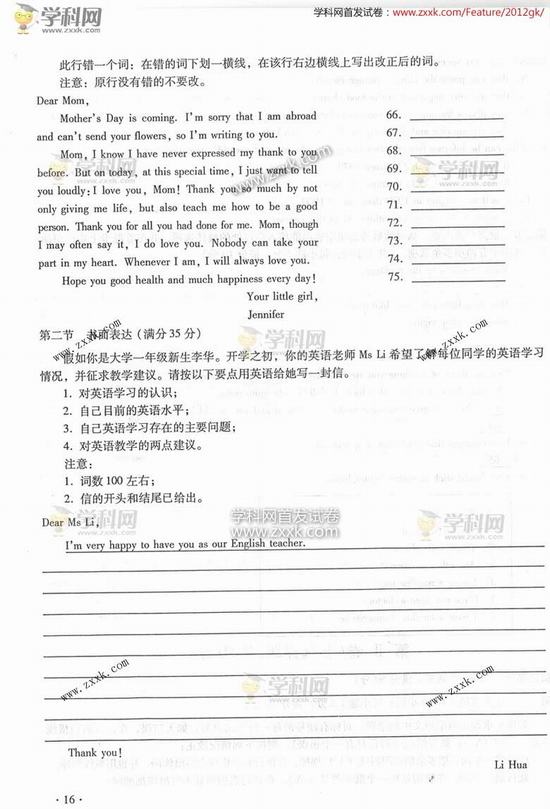 学科网
www.zxxk.com
学科网首发试卷:www.zxxk.com/Feature/2012gk/
此行错一个词：在错的词下划一横线，在该行右边横线上写出改正后的词。
注意：原行没有错的不要改。
Dear Mom,
Mother's Day is coming. I'm sorry that I am abroad 66.
and can't send your flowers, so I'm writing to you. 67.
Mom, I know I have never expressed my thank to you 68.
before. But on today, at this special time, I just want to tell 69.
you loudly: I love you, Mom! Thank you so much by not 70.
only giving me life, but also teach me how to be a good 71.
person. Thank you for all you had done for me. Mom, though 72.
I may often say it, I do love you. Nobody can take your 73.
part in my heart. Whenever I am, I will always love you. 74.
Hope you good health and much happiness every day! 75.
Your little girl,
Jennifer
第二节 书面表达（满分35分）
假如你是大学一年级新生李华。开学之初，你的英语老师 Ms Li 希望了解每位同学的英语学习
情况，并征求教学建议。请按以下要点用英语给她写一封信。
1. 对英语学习的认识；
2. 自己目前的英语水平；
3. 自己英语学习存在的主要问题；
4. 对英语教学的两点建议。
注意：
1. 词数100左右；
2. 信的开头和结尾已给出。
学科网首发试卷
www.zxxk.com
Dear Ms Li,
I'm very happy to have you as our English teacher.
Thank you!
Li Hua
· 16 ·